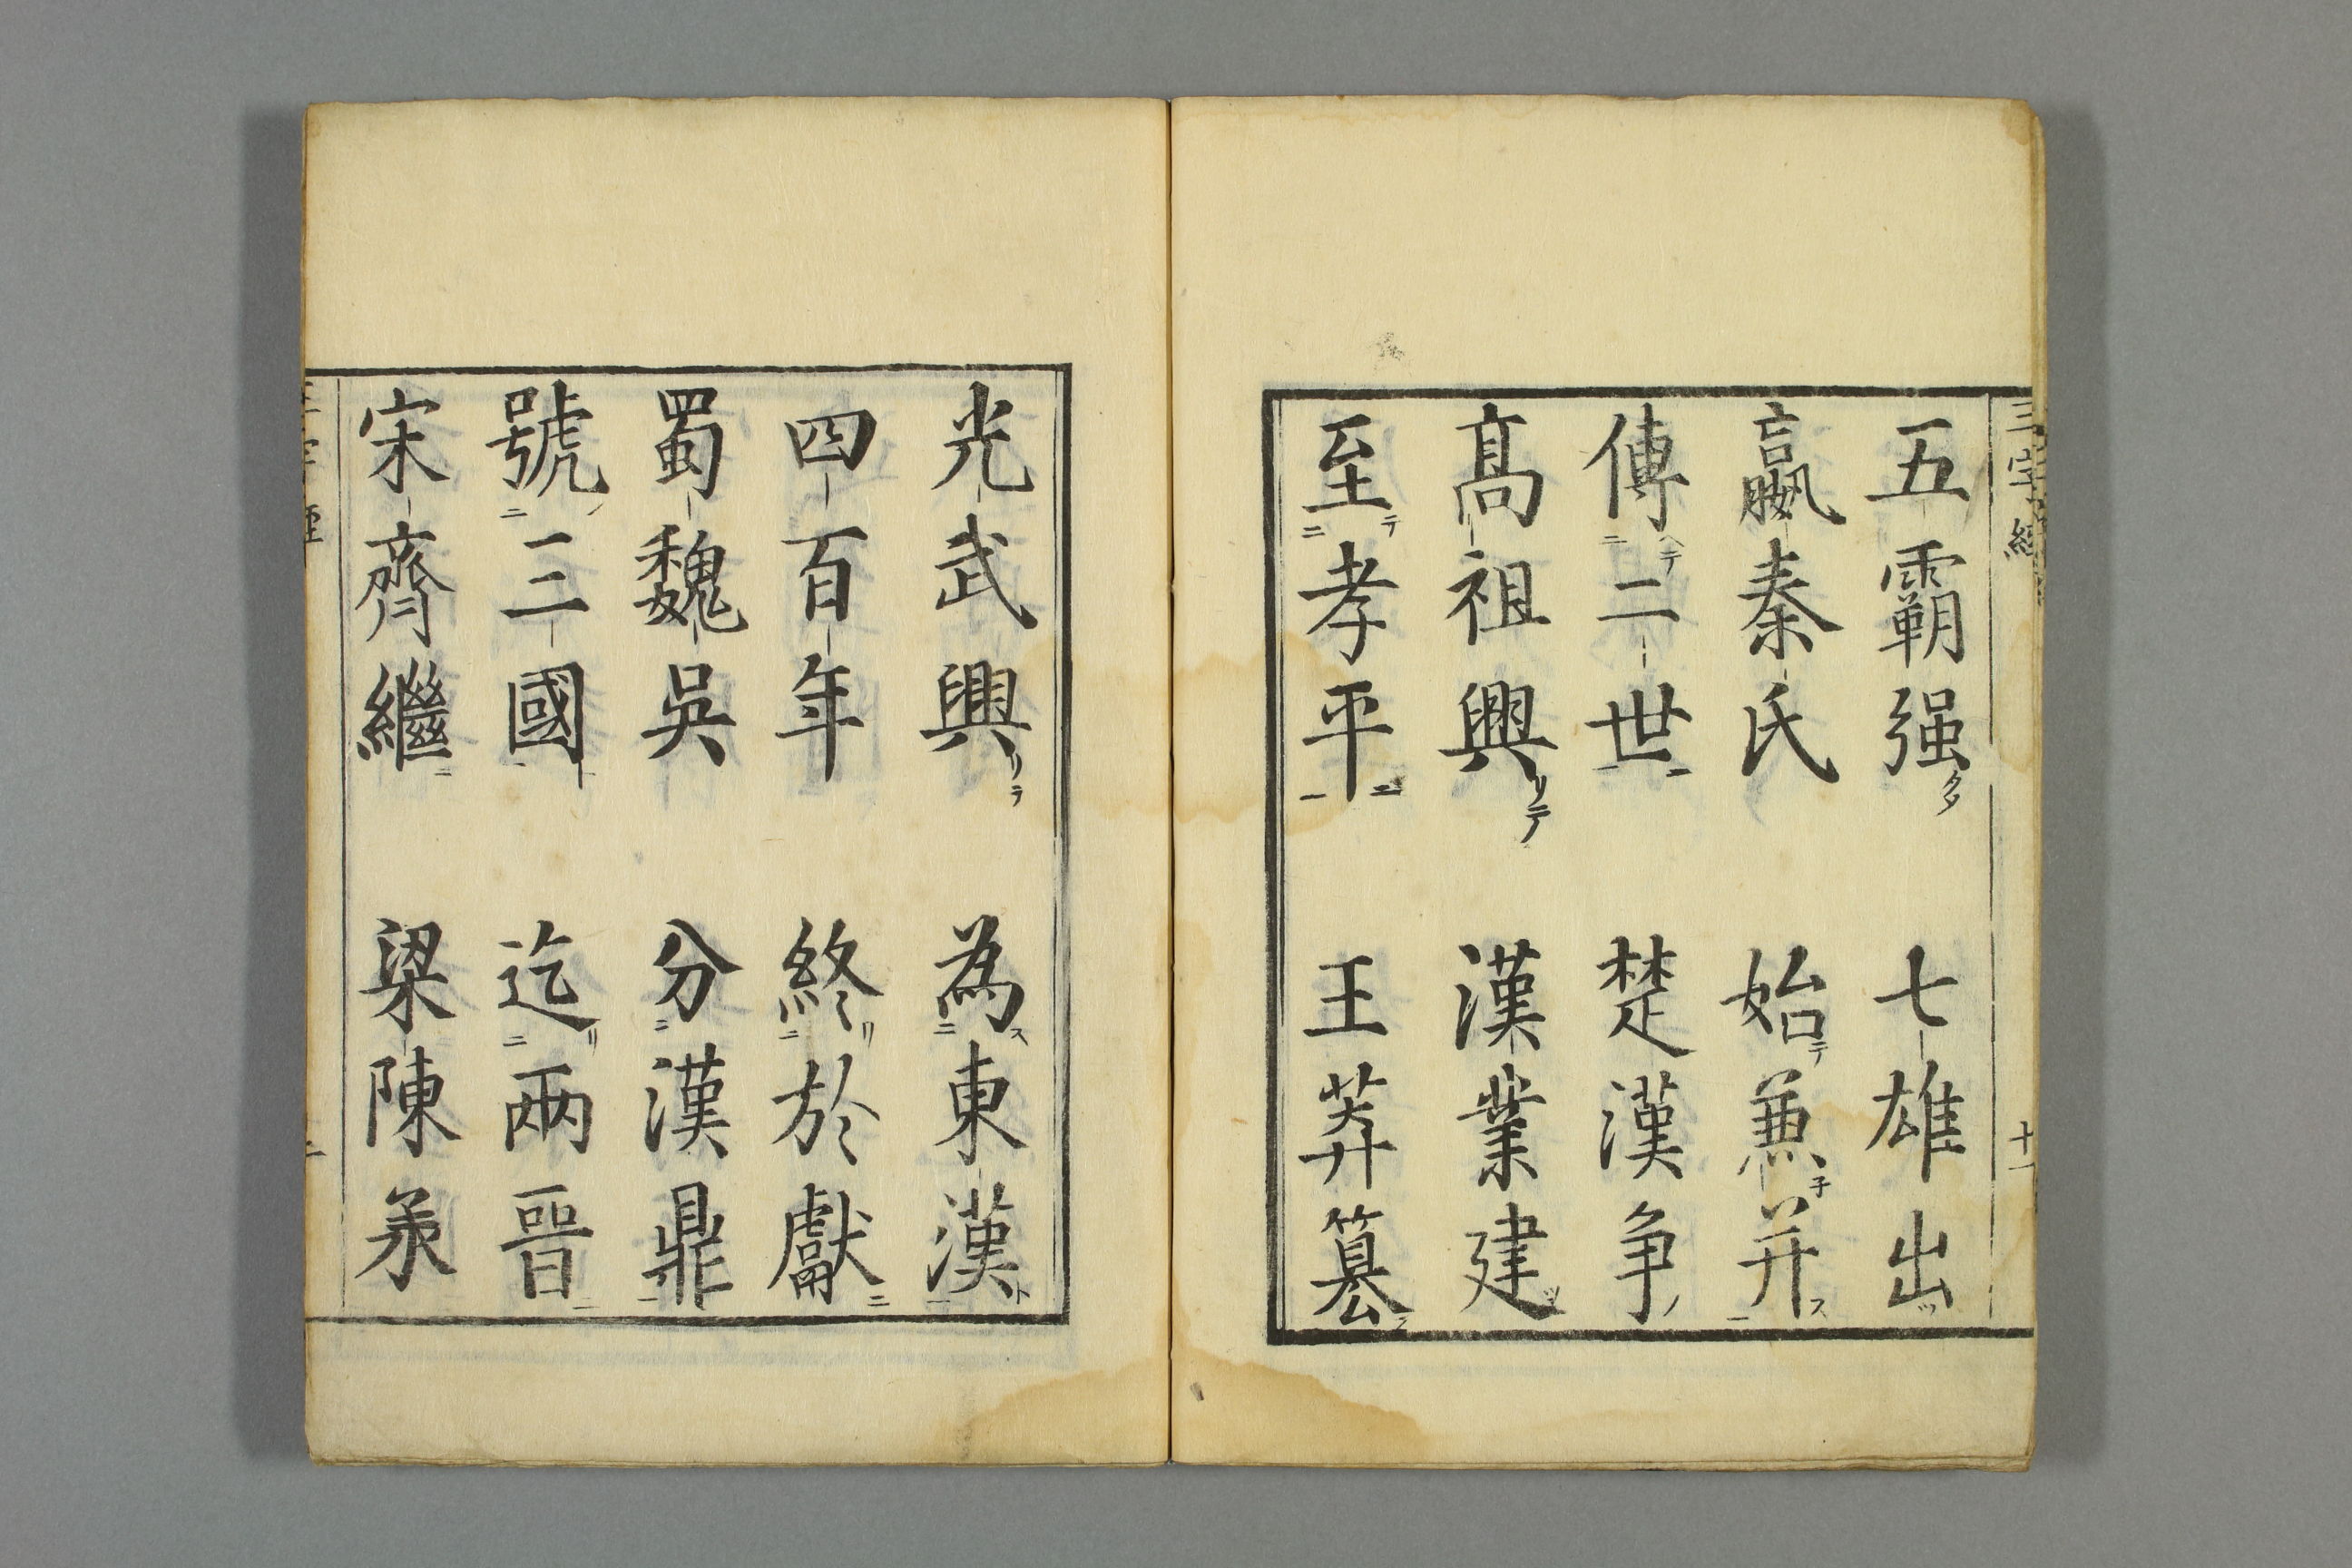 三字經 十一
五霸强 七雄出
嬴秦氏 始兼并
傳二世 楚漢争
髙祖興 漢業建
至孝平 王莽篡
光武興 為東漢
四百年 終於獻
蜀魏吳 分漢鼎
號三國 迄兩晋
宋齊繼 梁陳承